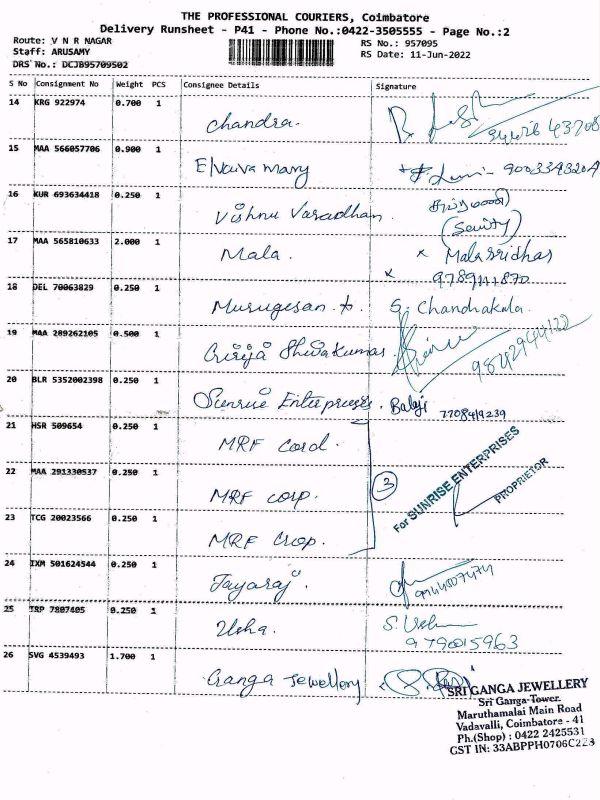 THE PROFESSIONAL COURIERS, Coimbatore
Delivery Runsheet - P41 - Phone No.:0422-3505555 - Page No.:2
Route: V N R NAGAR
RS No.: 957095
Staff: ARUSAMY
RS Date: 11-Jun-2022
DRS No.: DCJB95709502
S No Consignment No Weight PCS Consignee Details Signature
14 KRG 922974 0.700 1
Chandra.
15 MAA 566057706 0.900 1
mary
16 KUR 693634418 0.250 1
Vishnu Varadhan.
17 MAA 565810633 2.000 1
Mala. x Mala Sridhar
x 9789111870
18 DEL 70063829 0.250 1
Murugesan. S. Chandrakala.
19 MAA 289262105 0.500 1
Girija Shivakumar 9842944122
20 BLR 5352002398 0.250 1
Sunrise Enterprises. Balaji 7708419239
21 HSR 509654 0.250 1
MRF Cord.
For SUNRISE ENTERPRISES
PROPRIETOR
22 MAA 291330537 0.250 1
MRF corp. 3
23 TCG 20023566 0.250 1
MRF Crop.
24 IXM 501624544 0.250 1
Jayaraj.
25 TRP 7807405 0.250 1
Usha. S. Ush
9790015963
26 SVG 4539493 1.700 1
Ganga Jewellery
SRI GANGA JEWELLERY
Sri Ganga-Tower.
Maruthamalai Main Road
Vadavalli, Coimbatore - 41
Ph.(Shop) : 0422 2425531
GST IN: 33ABPPH0706C2Z3